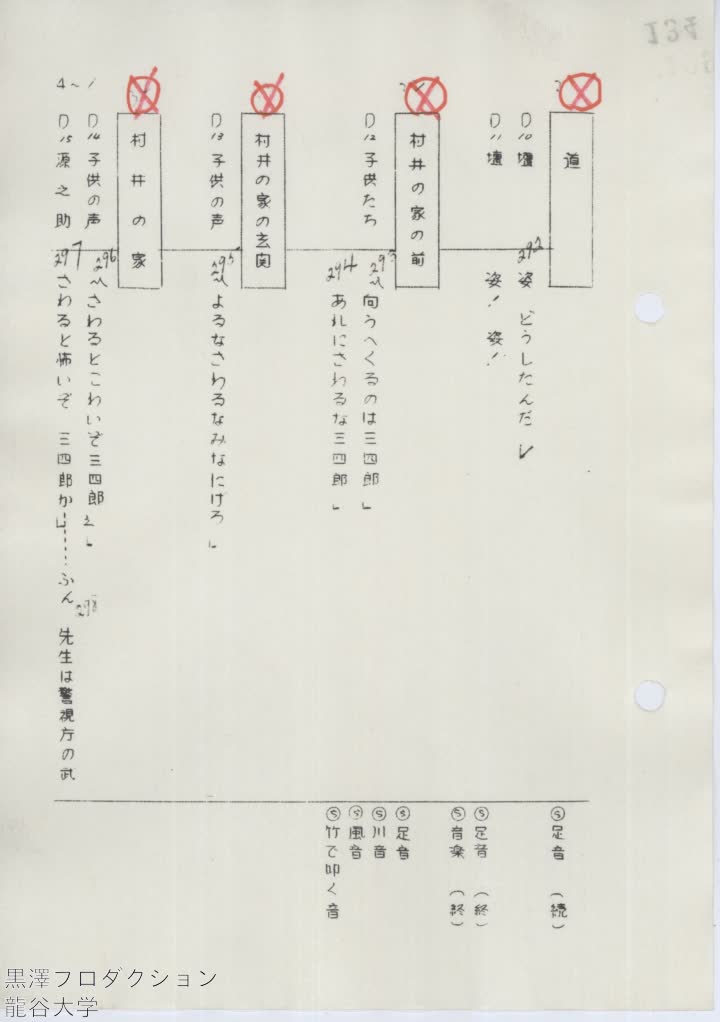 134
道
D10 壇
292 姿 どうしたんだ
D11 壇
姿! 姿!
村井の家の前
D12 子供たち
293 〽向うへくるのは三四郎」
294 あれにさわるな三四郎」
村井の家の玄関
D13 子供の声
295 〽よるなさわるなみなにげろ」
村井の家
D14 子供の声
296 〽さわるとこわいぞ三四郎え」
D15 源之助
297 さわると怖いぞ 三四郎か……ふん 298 先生は警視庁の武
4~1
Ⓢ足音 (続)
Ⓢ足音 (終)
Ⓢ音楽 (終)
Ⓢ足音
Ⓢ川音
Ⓢ風音
Ⓢ竹で叩く音
黒澤プロダクション
龍谷大学